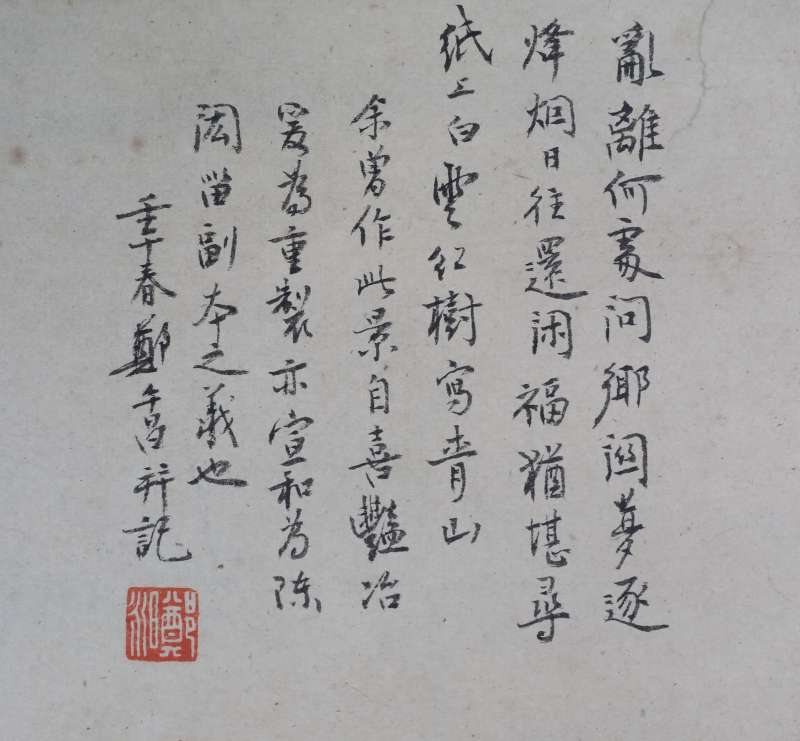 亂離何處問鄉關夢逐
烽烟日往還閑福猶堪尋
紙上白雲紅樹寫青山
余曾作此景自喜豔冶
爰為重製亦宣和為陈
閎留副本之義也
壬午春鄭午昌并記
鄭昶